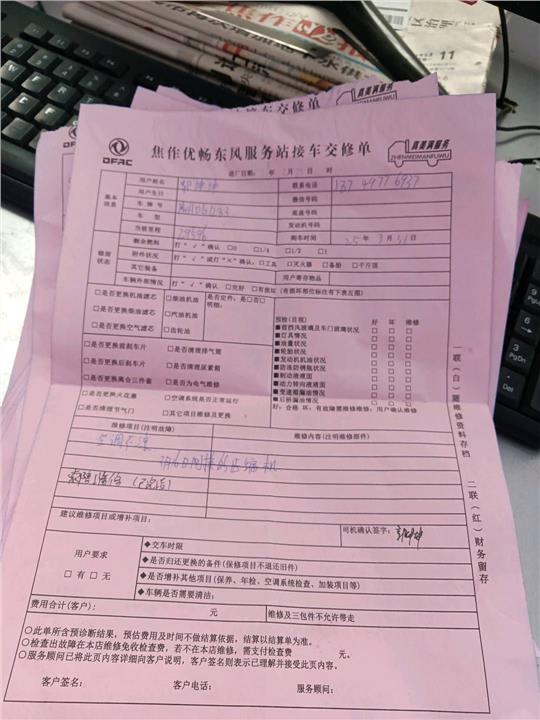 11
接车交修单
真美满服务
ZHENMEIMANFUWU
DFAC
焦作优畅东风服务站接车交修单
进厂日期： 年 月 日 时
基本信息
用户姓名
联系电话
137 4977 6937
用户生日
微信号码
车牌号
底盘号
车型
发动机号码
当前里程
79596
购车时间
25年3月31日
修前状态
剩余燃料 打"√"确认 □0 □1/4 □1/2 □1
附件状况 打"√"或打"×"确认：□工具 □灭火器 □备胎 □千斤顶
其它装备
用户寄存物品
车辆外部情况 打"√"确认 □完好 □有损坏（有损坏部位标注有下表左图）
□是否更换机油滤芯 □柴油机油
□是否更换柴油滤芯 □汽油机油
□是否更换空气滤芯 □齿轮油
是否定件：是□否□
明细：
□是否更换前刹车片 □是否清理排气筒
□是否更换后刹车片 □是否清理尿素箱
□是否更换离合三件套 □是否为电气维修
□是否更换火花塞 □空调系统是否正常运行
□是否清理节气门 □其它项目维修及更换
预检(目视) 好 坏 维修
■首挡风玻璃及车门玻璃状况
■灯具情况
■油量状况
■轮胎状况
■发动机机油状况
■防冻防锈瓶
■制动液液面
■动力转向液液面
■变速箱漏油情况
■后桥漏油情况
好：合格 坏：有故障需维修维修：用户确认维修
维修项目(注明故障)
维修内容(注明维修部件)
空调不凉
建议维修项目或增补项目：
司机确认签字：
用户要求
□有 □无
◆交车时限
◆是否归还更换的备件(保修项目不退还旧件)
◆是否增补其他项目(保养、年检、空调系统检查、加装项目等)
◆车辆是否需要清洁：
费用合计(客户)： 元
维修及三包件不允许带走
○此单所含预诊断结果，预估费用及时间不做结算依据，结算以结算单为准。
○检查出故障在本店维修免收检查费，若不在本店维修，需支付检查费 元。
○服务顾问已将此页内容详细向客户说明，客户签名则表示已理解并接受此页内容。
客户签名： 客户电话： 服务顾问：
一联（白）随维修资料存档
二联（红）财务留存